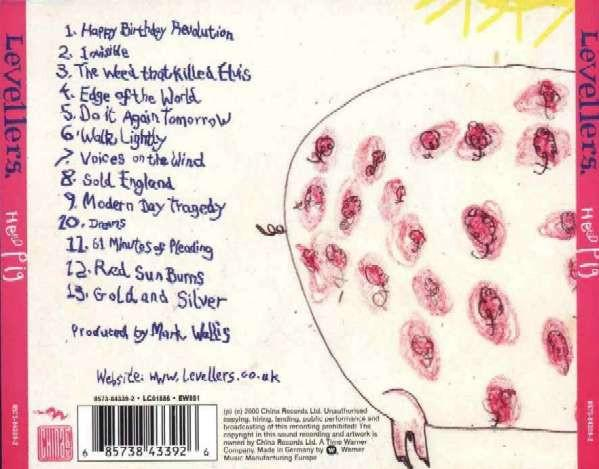 1. Happy Birthday Revolution
2. Invisible
3. The Weed that Killed Elvis
4. Edge of the World
5. Do it Again Tomorrow
6. Walk Lightly
7. Voices on the Wind
8. Sold England
9. Modern Day Tragedy
10. Dreams
11. 61 Minutes of Pleading
12. Red Sun Burns
13. Gold and Silver
Produced by Mark Wallis
Website: www.Levellers.co.uk
8573-84339-2 • LC01886 • EW801
6 85738 43392 6
CHINA
(p) (c) 2000 China Records Ltd. Unauthorised
copying, hiring, lending, public performance and
broadcasting of this recording prohibited! The
copyright in this sound recording and artwork is
owned by China Records Ltd. A Time Warner
Company. Made in Germany by Warner
Music Manufacturing Europe
Levellers.
Hello Pig
8573-84339-2
Levellers.
Hello Pig
8573-84339-2